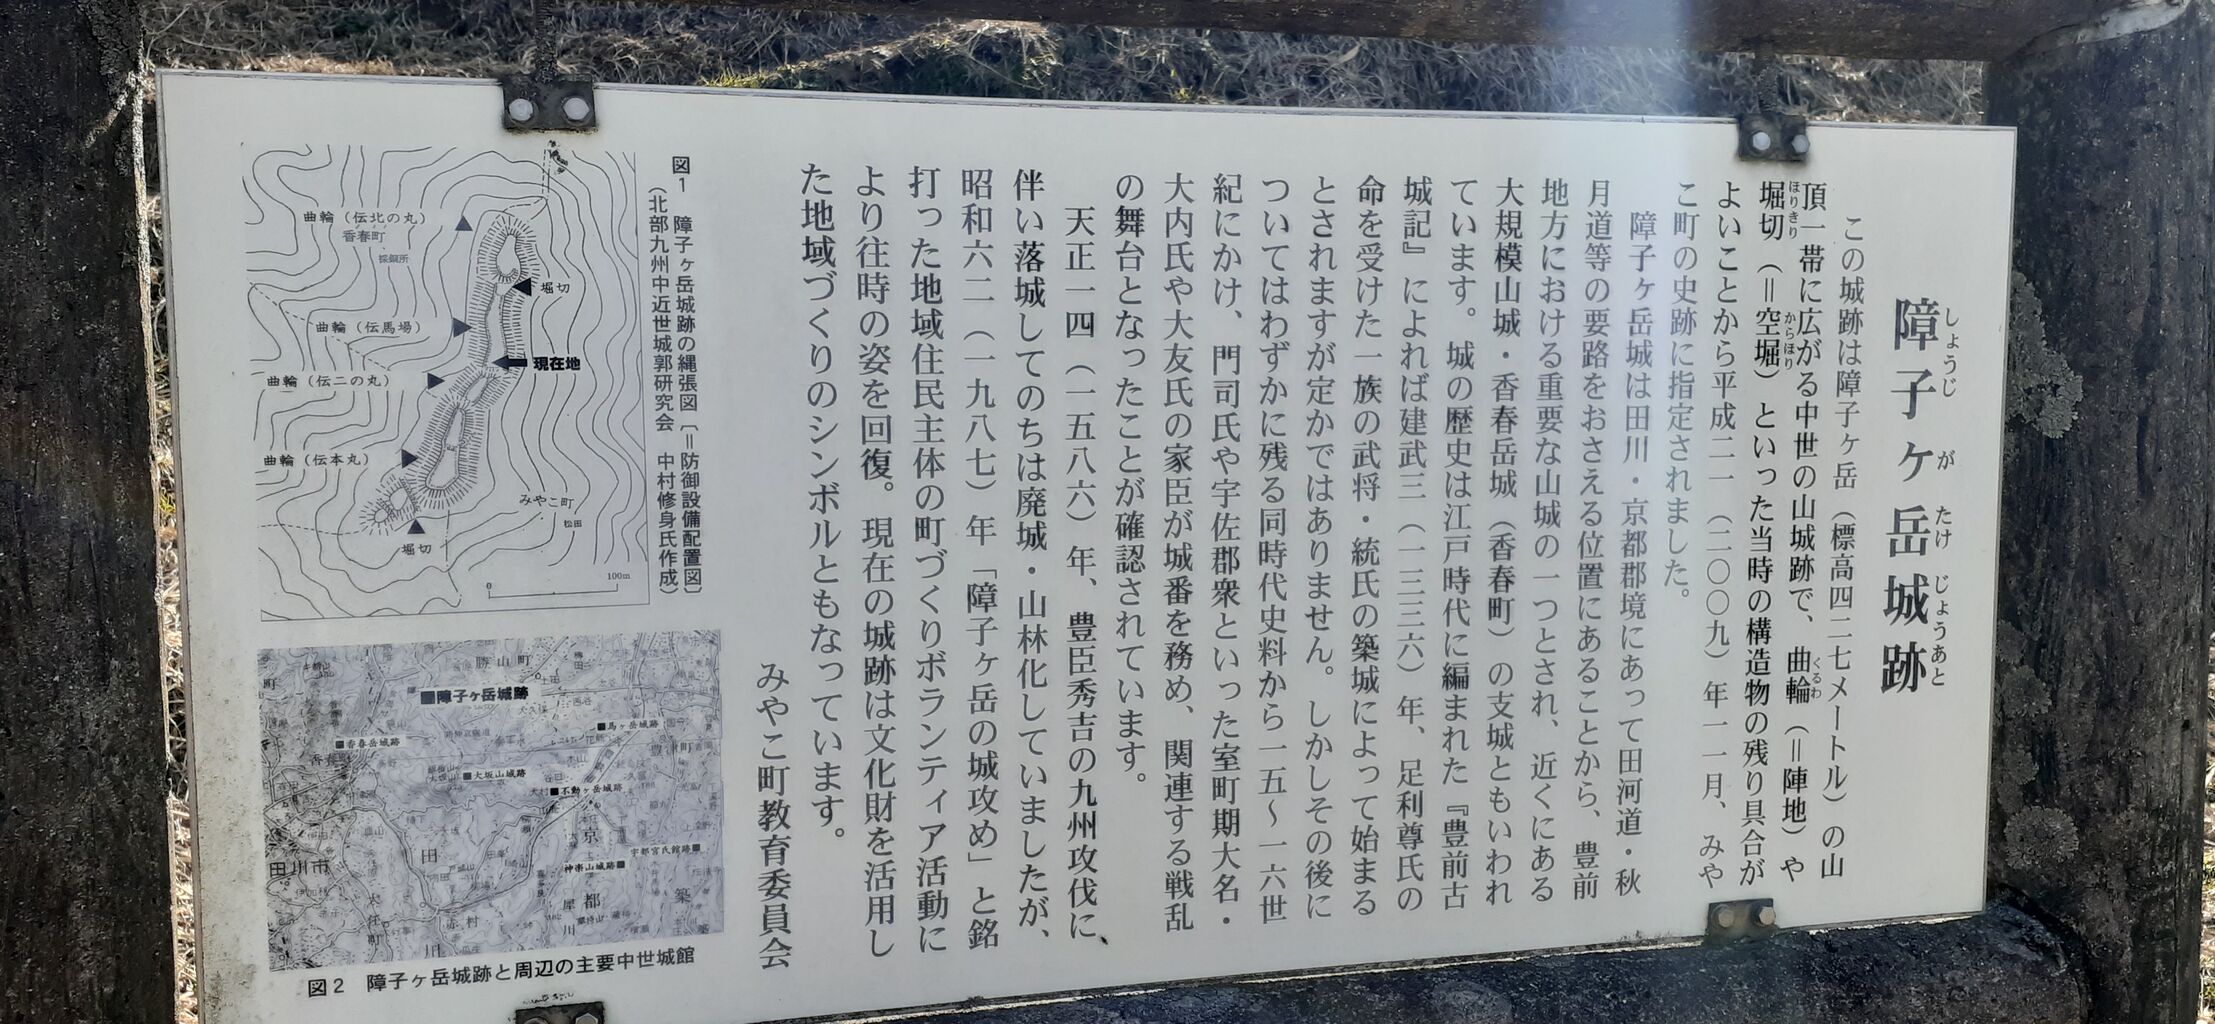 障子ヶ岳城跡
しょうじ が たけ じょうあと
この城跡は障子ヶ岳（標高四二七メートル）の山
頂一帯に広がる中世の山城跡で、曲輪（＝陣地）や
くるわ
堀切（＝空堀）といった当時の構造物の残り具合が
ほりきり からほり
よいことから平成二一（二〇〇九）年一一月、みや
こ町の史跡に指定されました。
障子ヶ岳城は田川・京都郡境にあって田河道・秋
月道等の要路をおさえる位置にあることから、豊前
地方における重要な山城の一つとされ、近くにある
大規模山城・香春岳城（香春町）の支城ともいわれ
ています。城の歴史は江戸時代に編まれた『豊前古
城記』によれば建武三（一三三六）年、足利尊氏の
命を受けた一族の武将・統氏の築城によって始まる
とされますが定かではありません。しかしその後に
ついてはわずかに残る同時代史料から一五～一六世
紀にかけ、門司氏や宇佐郡衆といった室町期大名・
大内氏や大友氏の家臣が城番を務め、関連する戦乱
の舞台となったことが確認されています。
天正一四（一五八六）年、豊臣秀吉の九州攻伐に
伴い落城してのちは廃城・山林化していましたが、
昭和六二（一九八七）年「障子ヶ岳の城攻め」と銘
打った地域住民主体の町づくりボランティア活動に
より往時の姿を回復。現在の城跡は文化財を活用し
た地域づくりのシンボルともなっています。
みやこ町教育委員会
図1 障子ヶ岳城跡の縄張図〔＝防御設備配置図〕
（北部九州中近世城郭研究会 中村修身氏作成）
曲輪（伝北の丸）
香春町
採銅所
堀切
曲輪（伝馬場）
現在地
曲輪（伝二の丸）
曲輪（伝本丸）
みやこ町
松田
堀切
0 100m
勝山町
■障子ヶ岳城跡
■馬ヶ岳城跡
■香春岳城跡
香春
■大坂山城跡
■不動ヶ岳城跡
京
宇都宮氏館跡■
神楽山城跡■
田川市
田
都
築
犀
川
大任町
赤村
川
図2 障子ヶ岳城跡と周辺の主要中世城館